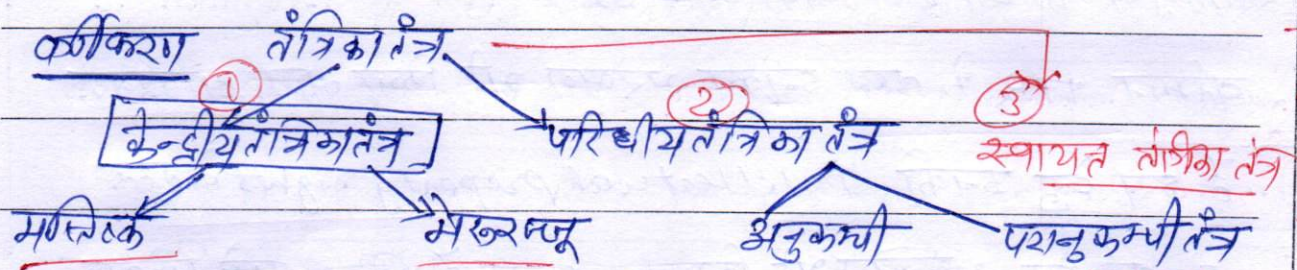 वर्गीकरण तंत्रिका तंत्र
① ② ③
केन्द्रीय तंत्रिका तंत्र परिधीय तंत्रिका तंत्र स्वायत्त तंत्रिका तंत्र
मस्तिष्क मेरूरज्जू अनुकम्पी परानुकम्पी तंत्र